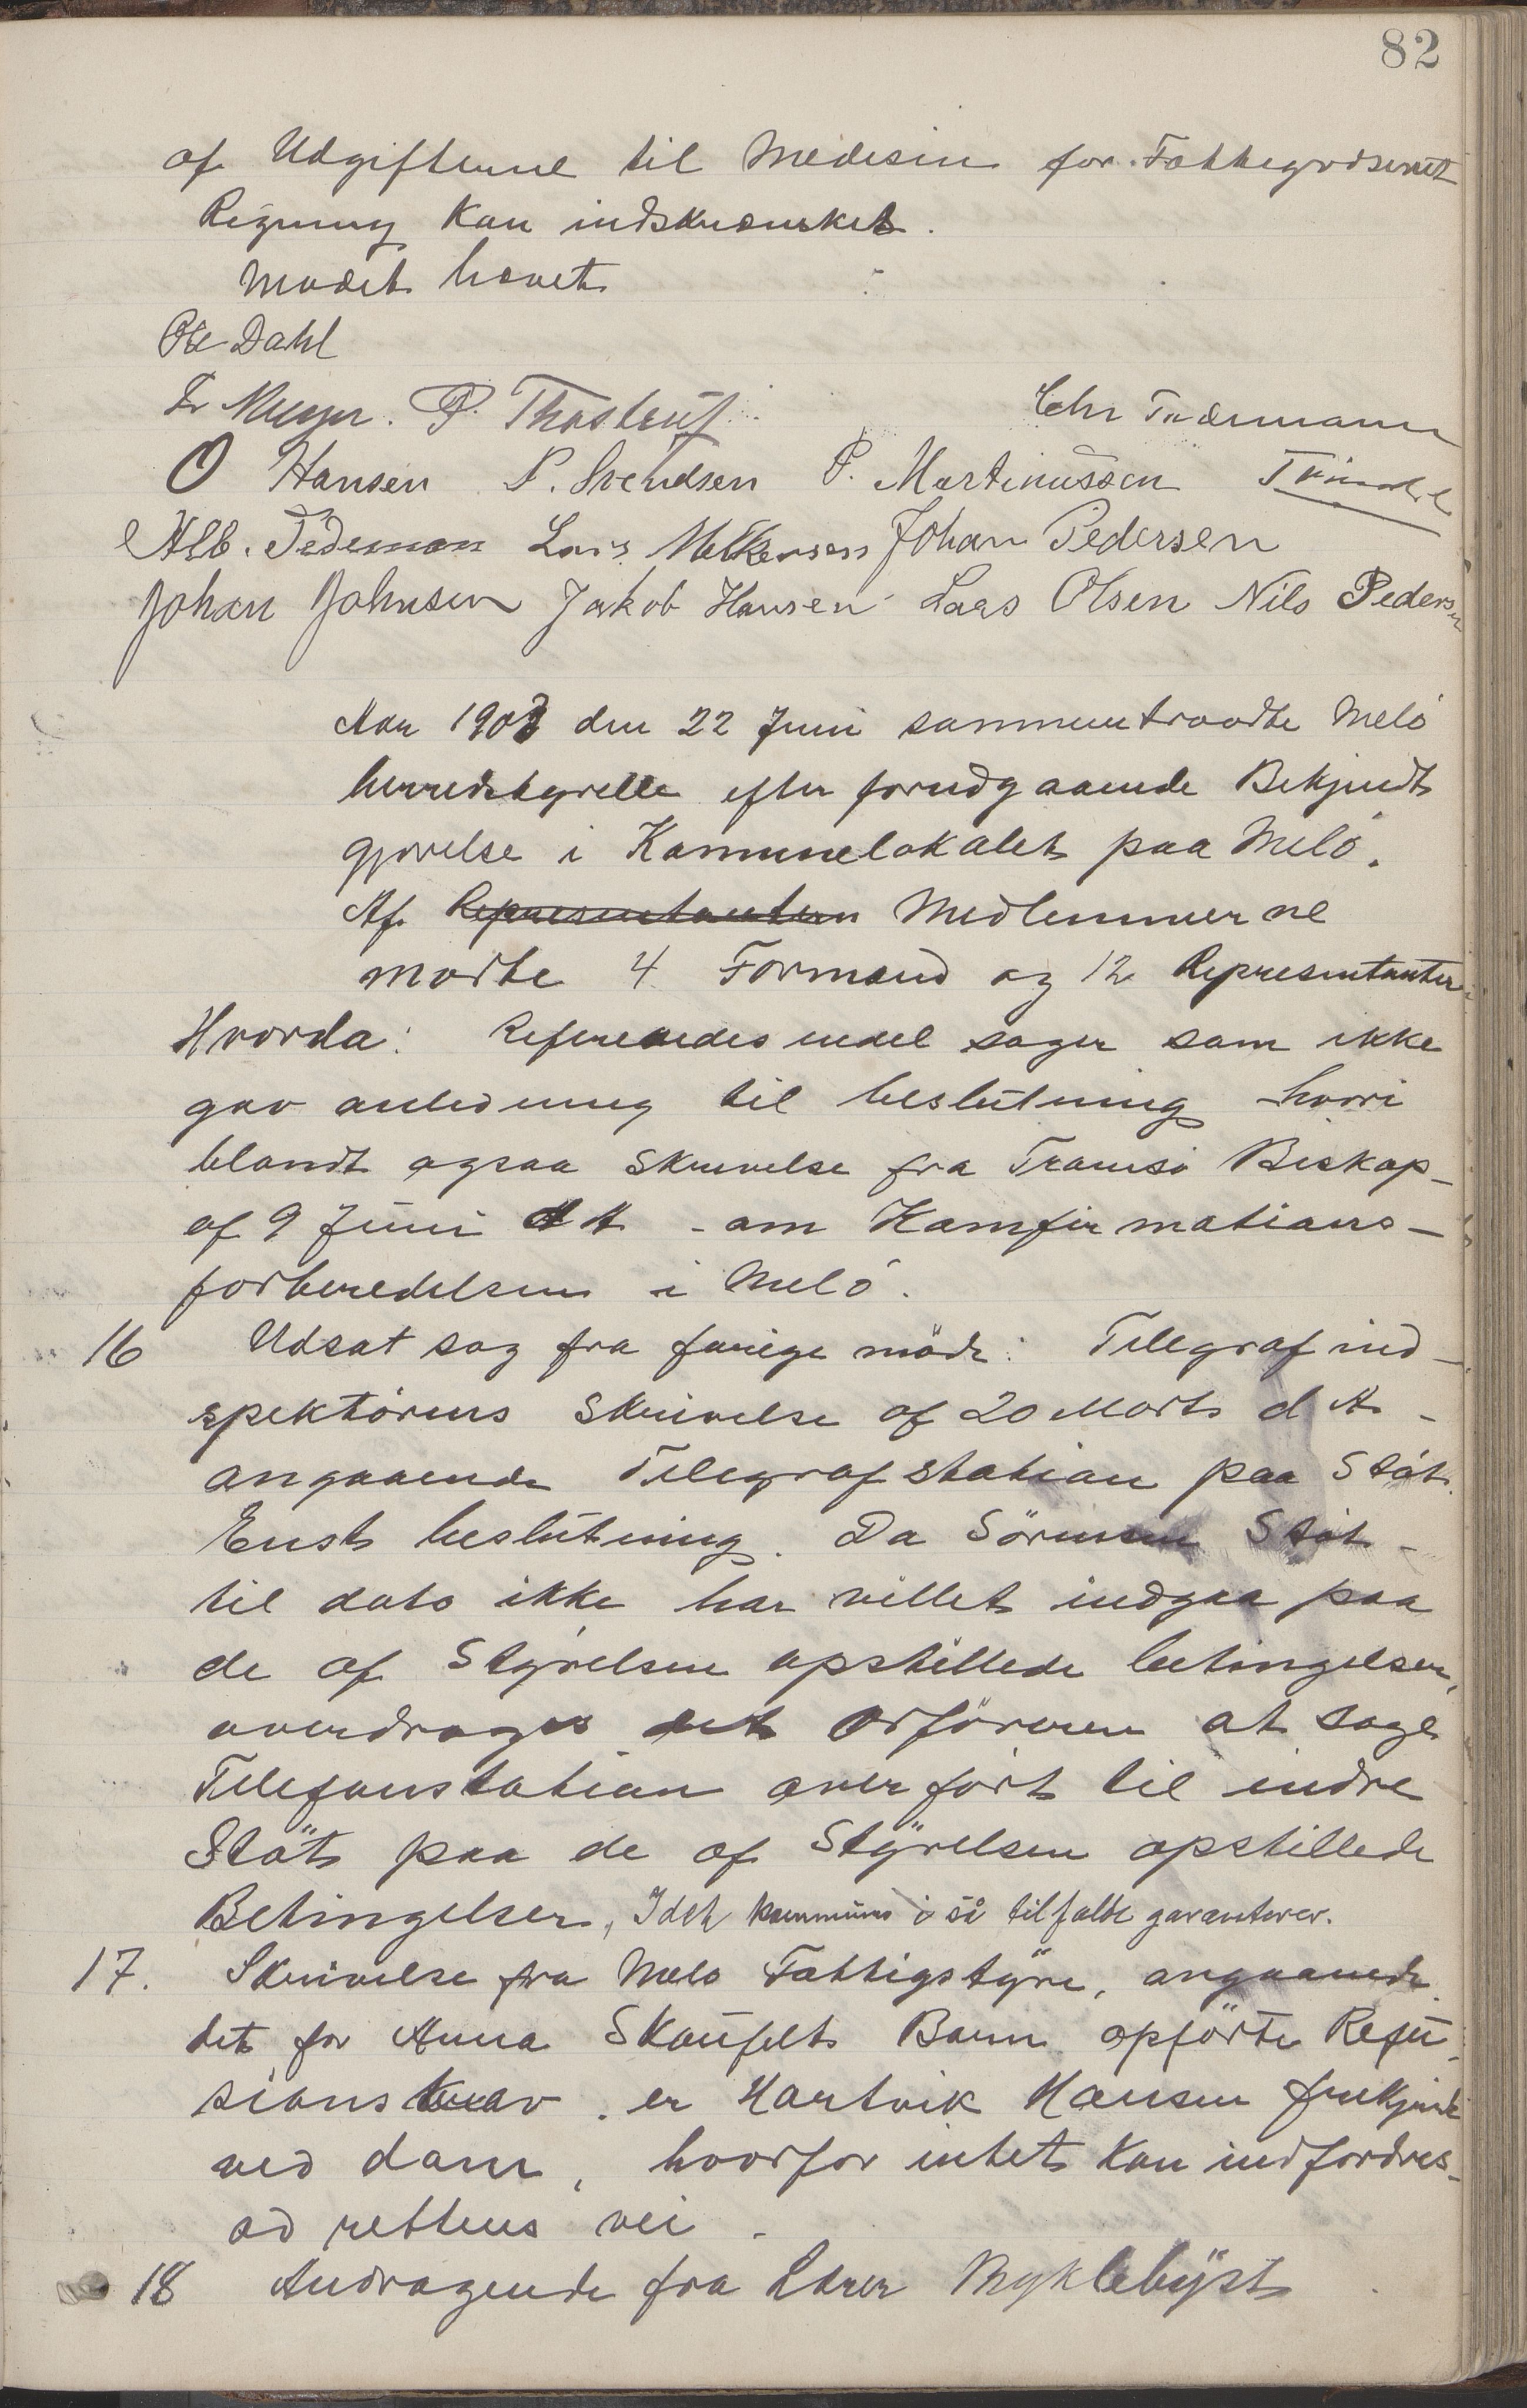 82
af Udgifterne til Medesin for Fattigvæsenets
Regning kan indskrænkes.
Mødet hævet
Ole Dahl
Fr Meyer. P. Thostrup. Chr Tidemann
O Hansen P. Svendsen P. Martinussen
Alb. Tideman Lars Melkersen Johan Pedersen
Johan Johnsen Jakob Hansen Laas Olsen Nils Pedersen
Aar 1903 den 22 Juni sammentraadte Melö
herredstyrelle efter forudgaaende Bekjendt
gjørelse i Kommunelokalet paa Melö.
Af Representanteren Medlemmerne
mødte 4 Formænd og 12 Representanter
Hvorda: Refereredes endel sager som ikke
gav anledning til beslutning hvori
blandt ogsaa Skrivelse fra Tromsö Biskop
af 9 Juni d A - om Konfirmations-
forberedelsen i Melö.
16 Udsat sag fra forrige möde: Telegrafind-
spektörens Skrivelse af 20 Marts d A -
angaaende Telegrafstation paa Stöt.
Enst beslutning. Da Sörensen Stöt -
til dato ikke har villet indgaa paa
de af Styrelsen opstillede betingelser,
overdrages det Orföreren at søge
Telefonstation overfört til indre
Stöt paa de af Styrelsen opstillede
Betingelser, Idet kommunen i så tilfælde garanterer.
17. Skrivelse fra Melö Fattigstyre, angaaende
det for Anna Skaufelts Barn opförte Refu-
sionskrav. er Hartvik Hansen frikjendt
ved dom, hvorfor intet kan indfordres
ad rettens vei.
18 Andragende fra Lærer Myklebyst